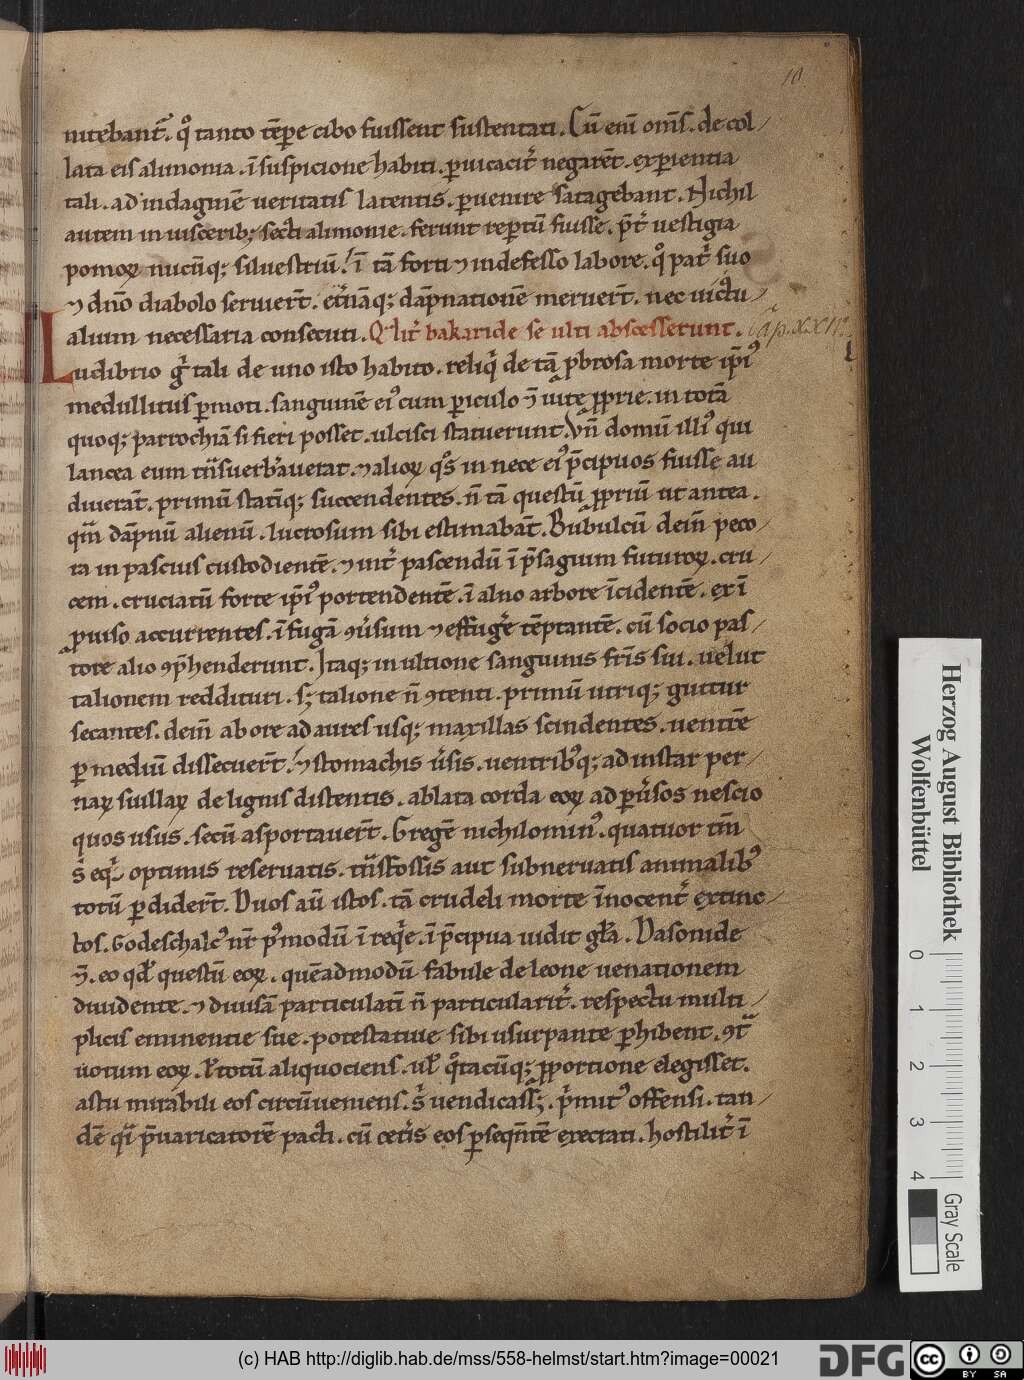 10
nitebant᷑. qͦ tanto tēꝑe cibo fuissent sustentati. Cū eni̅ om̅s. de col/
lata eis alimonia. i̅ suspicione habiti. ꝑuicacit᷑ negarēt. exꝑientia
tali. ad indaginē ueritatis latentis. ꝑuenire satagebant. Nichil
autem in uiscerib; secti alimonie. ferunt reꝑtū fuisse. p̄t᷑ uestigia
pomoꝝ nucūq; siluestriū. i̅ tā forti ⁊ indefesso labore. qͦ pat᷑ suo
⁊ dn̄o diabolo seruier̄t. et᷑nāq; dāpnationē meruer̄t. nec uictu/
alium necessaria consecuti. Qͣlit᷑ bakaride se ulti abscesserunt. Cap. XXIII.
Ludibrio g᷑ tali de uno isto habito. reliq᷑ de tā ꝓbrosa morte ip̄i᷒
medullitus ꝑmoti. sanguinē ei᷒ cum ꝑiculo ⁊ uitę ꝓprie. in totā
quoq; parrochiā si fieri posset. ulcisci statuerunt. Vn̄ domū illi᷒ qui
lancea eum tn̄suerb᷑auerat. ⁊ alioꝝ qͦs in nece ei᷒ p̄cipuos fuisse au
diuerāt. primū statīq; succendentes. n̄ tā questū ꝓpriū ut antea.
qͣm dāpnū alienū. lucrosum sibi estimabāt. Bubulcū dein̄ peco/
ra in pascuis custodientē. ⁊ int᷑ pascendū i̅ p̄sagium futuroꝝ. cru/
cem. cruciatū forte ip̄i᷒ portendentē. i̅ alno arbore īcidentē. ex i̅
ꝓuiso accurrentes. i̅ fugā ꝯu᷑sum ⁊ effuge᷑ tēptantē. cū socio pas/
tore alio ꝯp̄henderunt. Itaq; in ultione sanguinis fr̄is sui. uelut
talionem reddituri. s; talione n̄ ꝯtenti. primū utriq; guttur
secantes. dein̄ ab ore ad aures usq; maxillas scindentes. uentrē
ꝑ mediū dissecuer̄t. ⁊ stomachis u᷑sis. uentrib᷒q; ad instar per/
naꝝ suillaꝝ de lignis distentis. ablata corda eoꝝ ad ꝑu᷑sos nescio
quos usus. secū asportauer̄t. Gregē nichilomin᷒. quatuor tm̄
s᷑ eq᷑ optimis reseruatis. tn̄sfossis aut subneruatis animalib᷒
totū ꝑdider̄t. Duos aū istos. tā crudeli morte i̅nocent᷑ extinc/
tos. Godeschalc᷒ nr̄ p᷒modū i̅ req᷑e. i̅ p̄cipua uidit gl̄a. Dasonide
⁊. eo qd̄ questū eoꝝ. quēadmodū fabule de leone uenationem
diuidente. ⁊ diuisā particulatī n̄ particularit᷑. respectu multi/
plicis eminentie sue. potestatiue sibi usurpante ꝑhibent. ꝯtͣ
uotum eoꝝ. ł totū aliquociens. ul̄ qͦtacūq; ꝓportione elegisset.
astu mirabili eos circūueniens. s᷑ uendicass;. p᷑mit᷒ offensi. tan/
dē qͣi p̄uaricatorē pacti. cū cet᷑is eos ꝑseqn̄tē execrati. hostilit᷑ i̅
Herzog August Bibliothek
Wolfenbüttel
0 1 2 3 4
Gray Scale
(c) HAB http://diglib.hab.de/mss/558-helmst/start.htm?image=00021
DFG
cc BY SA